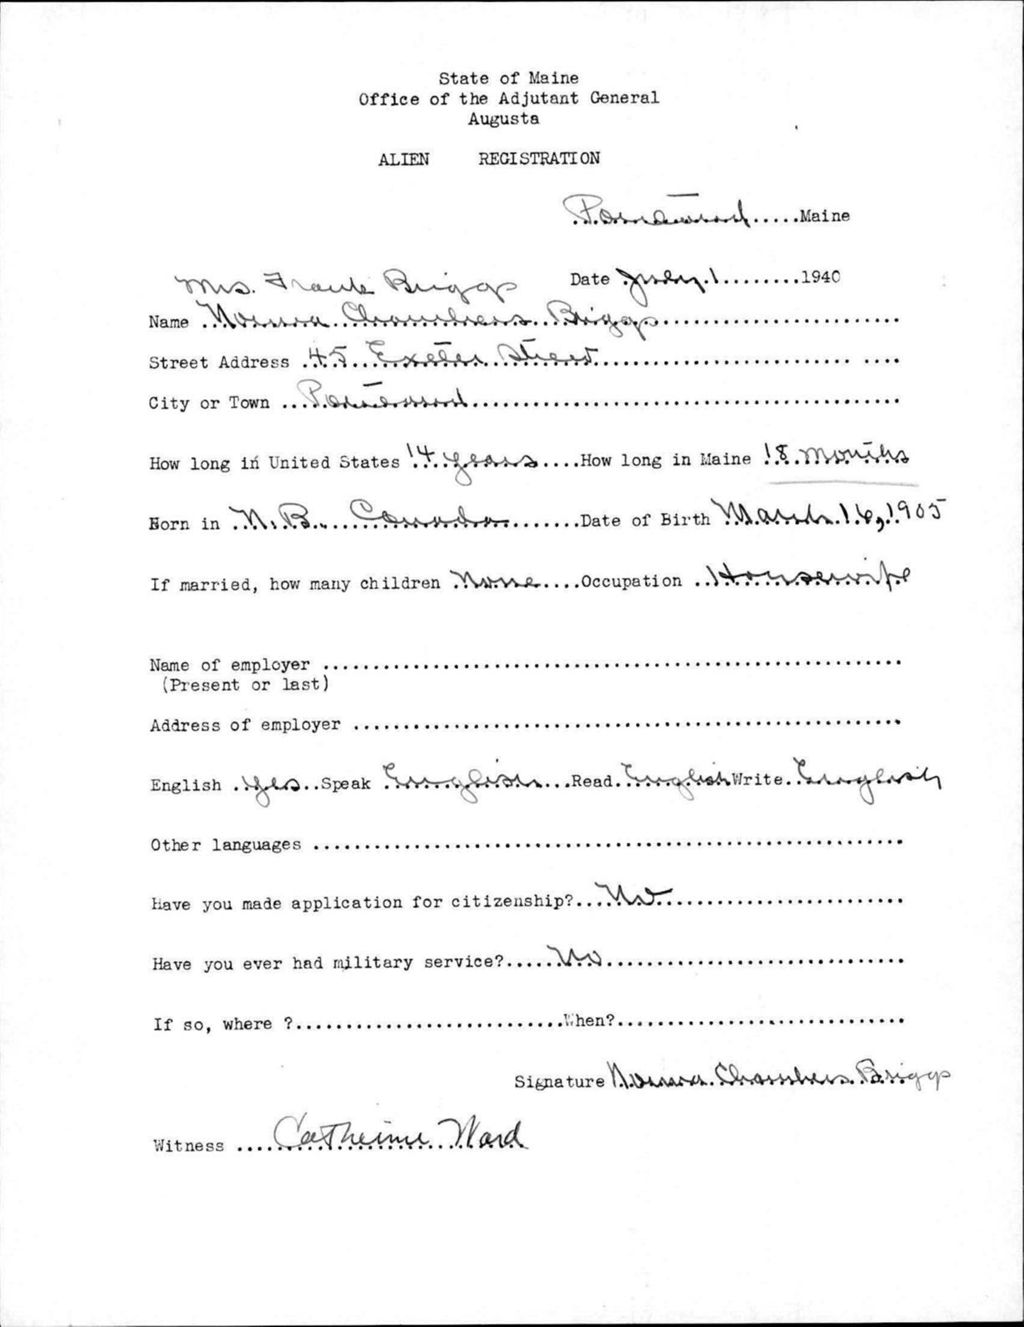 State of Maine
Office of the Adjutant General
Augusta
ALIEN REGISTRATION
.....Maine
Date July 1.........1940
Mrs. Frank Briggs
Name Norma Chambers Briggs
Street Address 45 Exeter Street
City or Town
How long in United States 14 years....How long in Maine 18 months
Born in N.B. Canada.......Date of Birth March 16, 1905
If married, how many children None....Occupation Housewife
Name of employer
(Present or last)
Address of employer
English Yes..Speak English...Read English Write English
Other languages
Have you made application for citizenship? No
Have you ever had military service? No
If so, where ?..........................When?
Signature Norma Chambers Briggs
Witness Catherine Ward